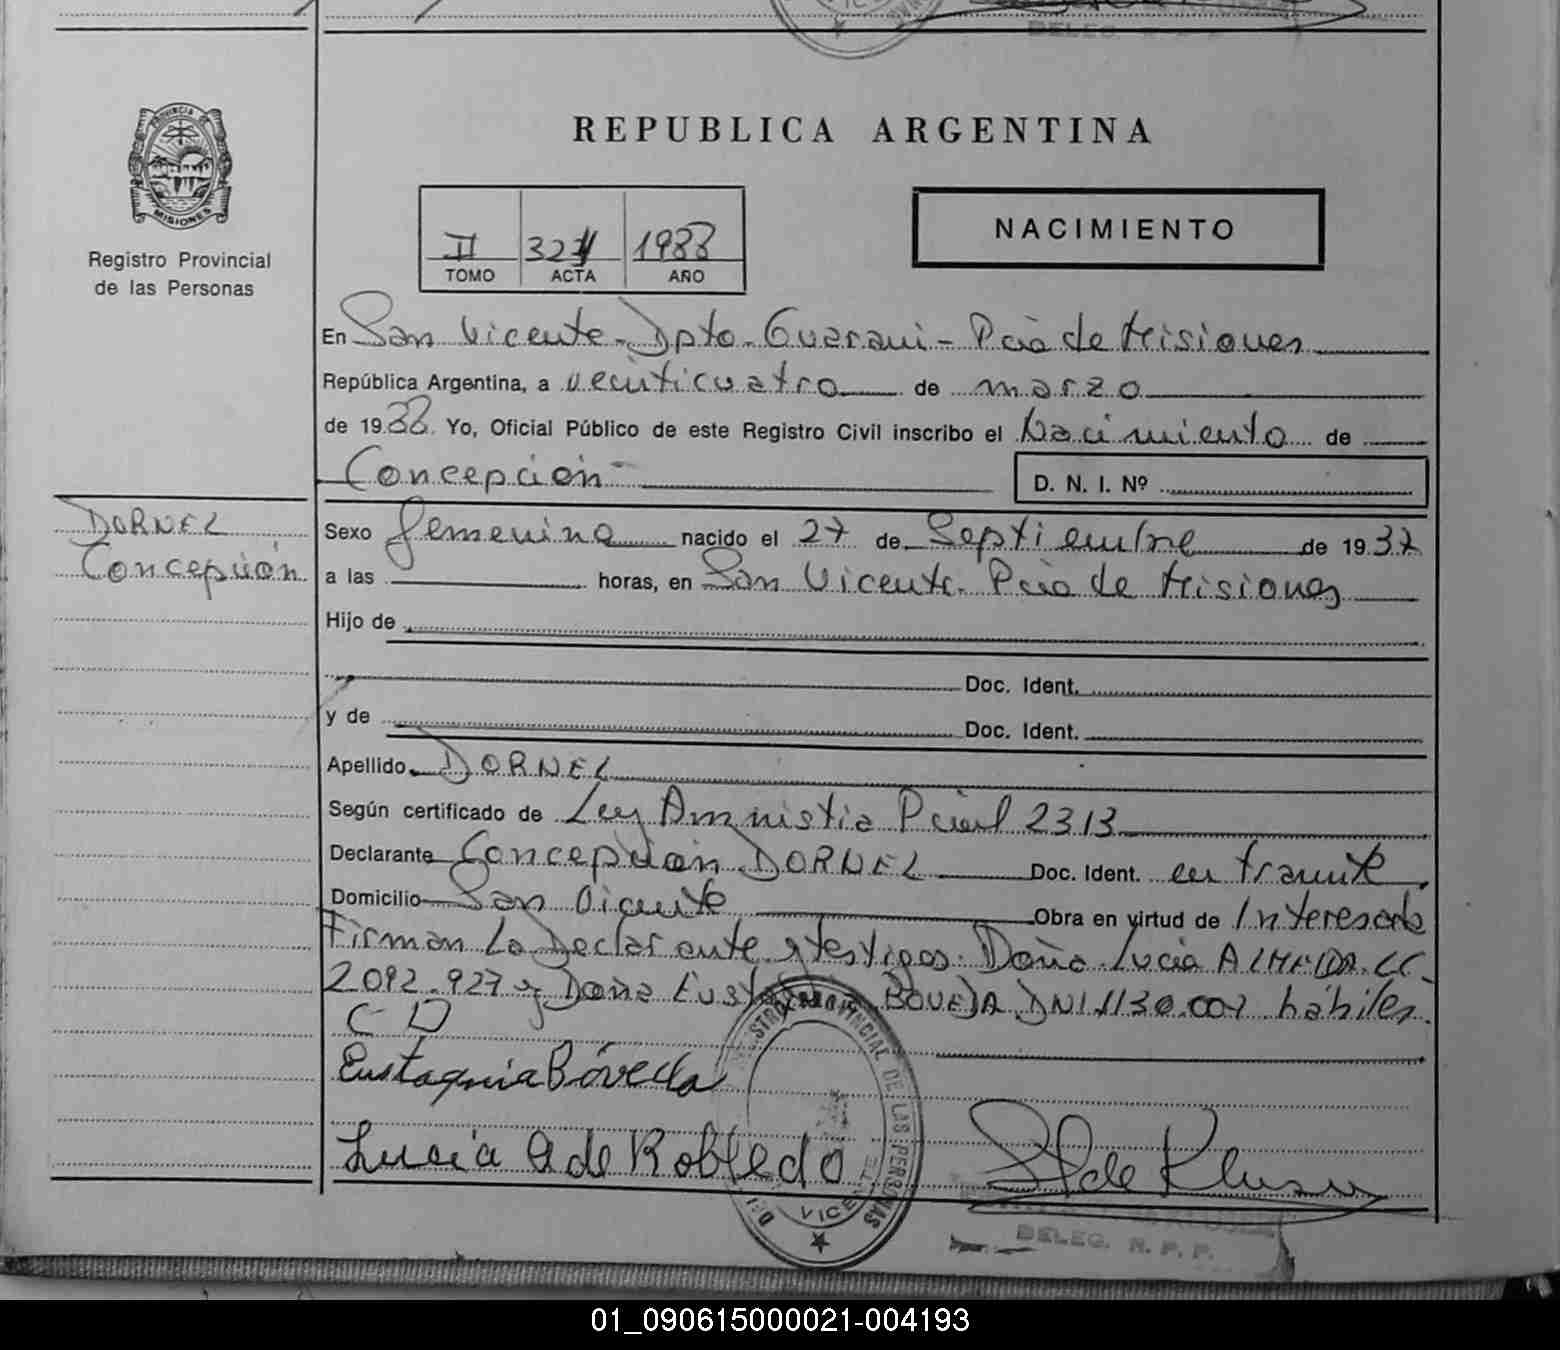 REPUBLICA ARGENTINA
PROVINCIA DE
MISIONES
Registro Provincial
de las Personas
II 1988
TOMO ACTA AÑO
NACIMIENTO
En San Vicente - Dpto. Guarani - Pcia de Misiones
República Argentina, a veinticuatro de marzo
de 1988 Yo, Oficial Público de este Registro Civil inscribo el Nacimiento de
Concepción
D. N. I. Nº
DORNEL
Concepción
Sexo femenino nacido el 27 de Septiembre de 1937
a las horas, en San Vicente. Pcia de Misiones
Hijo de
Doc. Ident.
y de Doc. Ident.
Apellido DORNEL
Según certificado de Ley Amnistia Pcial 2313
Declarante Concepcion DORNEL Doc. Ident. en tramite
Domicilio San Vicente Obra en virtud de Interesado
Firman La Declarante y testigos. Doña Lucia ALMEIDA. LC.
2092.927 y Doña BOVEDA DNI hábiles.
C D
Eustaquia Bóveda
Lucia A de Robledo
REGISTRO PROVINCIAL DE LAS PERSONAS
VICENTE
DELEG. R. P. P.
01_090615000021-004193